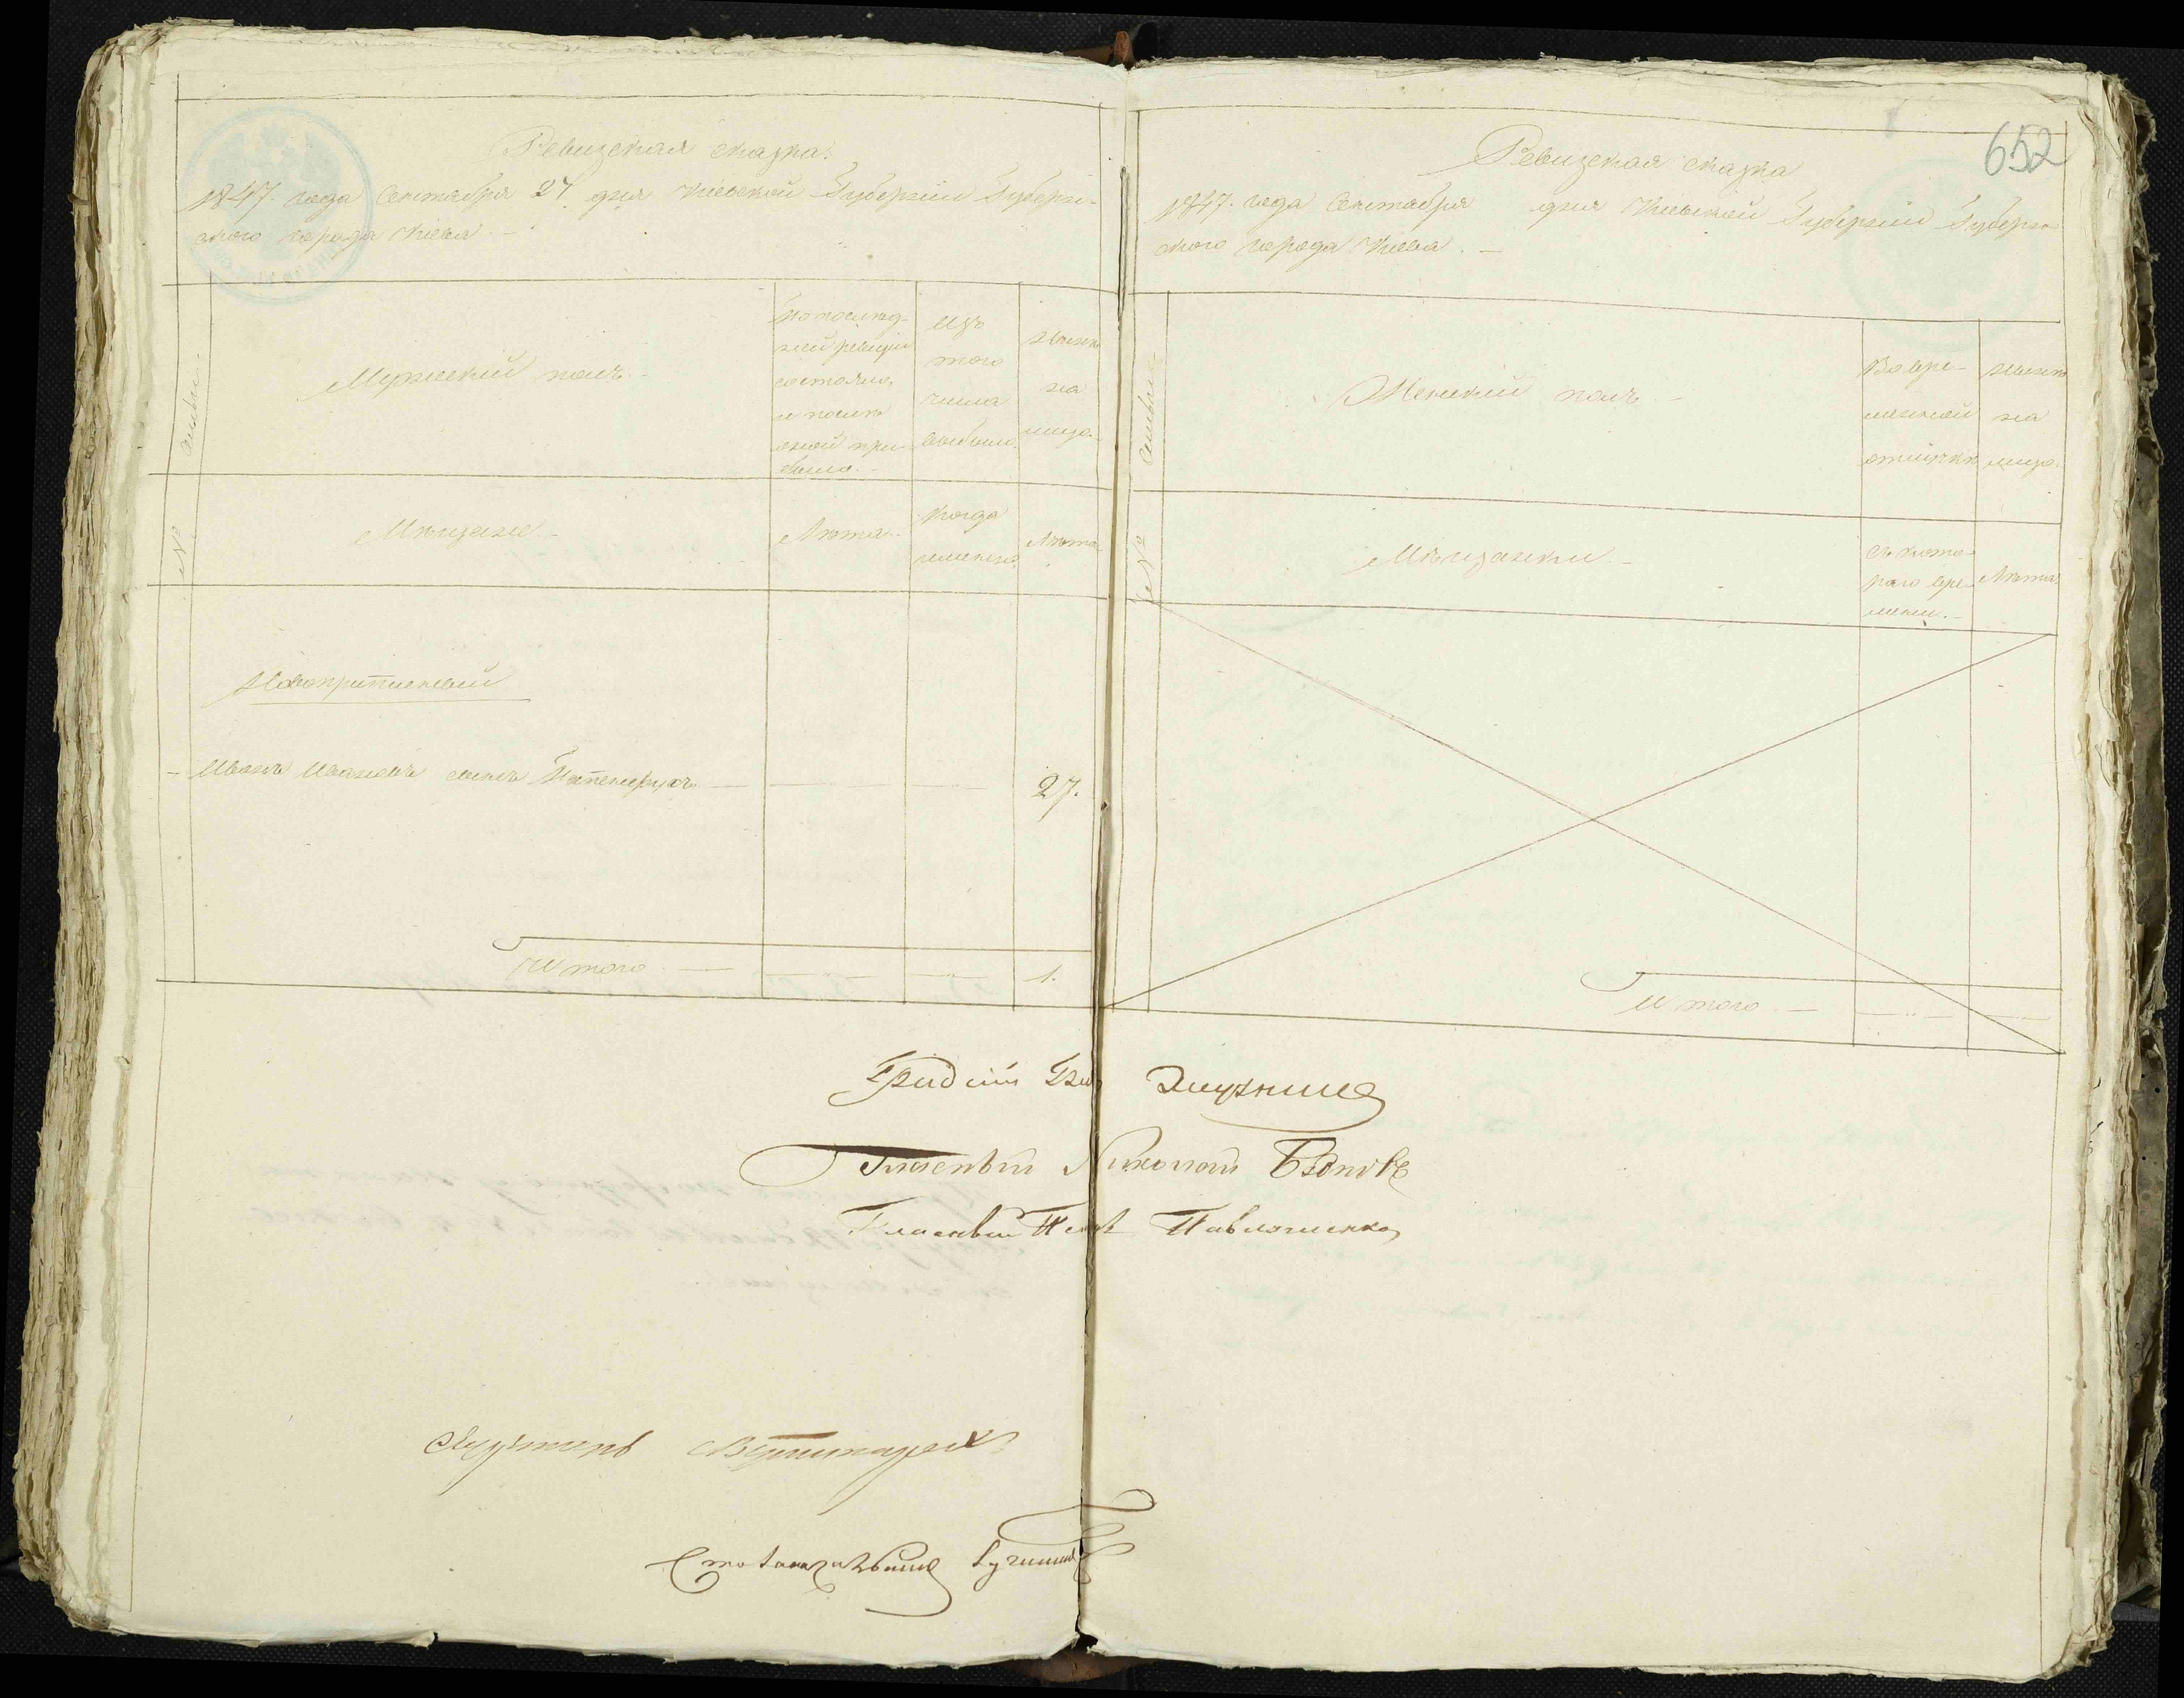 Ревизская сказка.
1847. года Сентября 27. дня Киевской Губернии Губерн-
скаго города Киева. –
№ Семьи.
Мужеский полъ. –
По послед-
ней ревизіи
состояло,
и послѣ
оной при-
было. –
Изъ
того
числа
выбыло.
Нынѣ
на
лицо.
Мѣщане. –
Лѣта.
Когда
именно.
Лѣта.
Новоприписный
– Иванъ Ивановъ сынъ
27.
Итого
1.
652
Ревизская сказка
1847. года Сентября дня Киевской Губернии Губерн-
скаго города Киева. –
№ Семьи
Женский полъ. –
Во вре-
менной
отлучкѣ
Нынѣ
на
лицо.
Мѣщанки. –
Съ кото-
раго вре-
мени. –
Лѣта.
Итого. –
Гласный Николай
Гласный Павлюченко